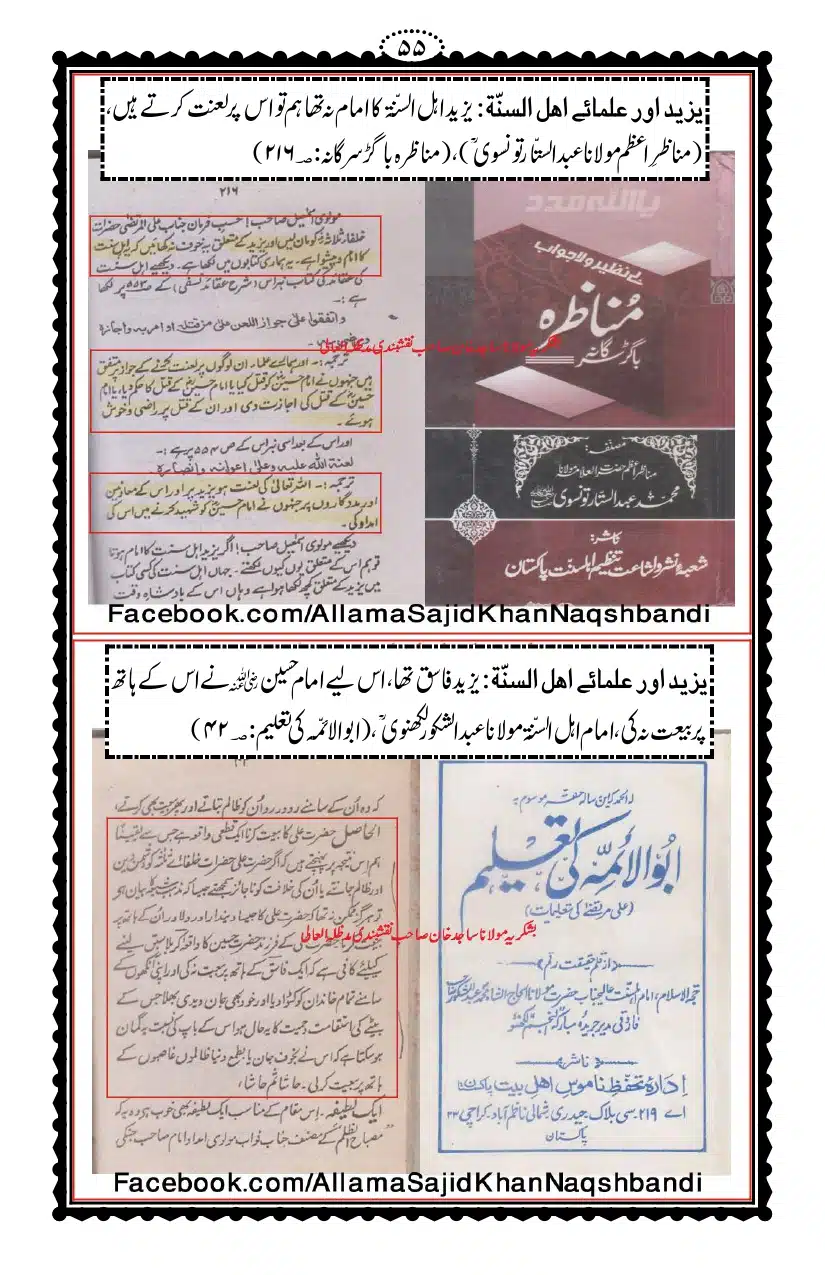 ۵۵
یزید اور علمائے اهل السنّة: یزید اہل السنّۃ کا امام نہ تھا ہم تو اس پر لعنت کرتے ہیں،
(مناظرِ اعظم مولانا عبدالستّار تونسویؒ)، (مناظرہ باگڑ سرگانہ: صـ ۲۱۶)
۲۱۶
مولوی اسمٰعیل صاحب! حسب فرمان جناب علی المرتضیٰ حضرات
خلفاء ثلاثہؓ کو مان لیں اور یزید کے متعلق یہ خوف نہ کھائیں کہ اہل سنت
کا امام و پیشوا ہے۔ یہ ہماری کتابوں میں لکھا ہے۔ دیکھیے اہل سنت
کی عقائد کی کتاب نبراس (شرح عقائد نسفی) کے صـ ۵۵۳ پر لکھا
ہے :۔
واتفقوا علیٰ جواز اللعن علیٰ من قتلہ او امر بہ واجازہ
ترجمہ :۔ اور ہمارے علماء ان لوگوں پر لعنت بھیجنے کے جواز پر متفق
ہیں جنہوں نے امام حسینؓ کو قتل کیا یا امام حسینؓ کے قتل کا حکم دیا، یا امام
حسینؓ کے قتل کی اجازت دی اور ان کے قتل پر راضی و خوش
ہوئے۔
اور اس کے بعد اسی نبراس کے ص ۵۵۴ پر ہے :۔
لعنۃ اللہ علیہ وعلیٰ اعوانہ وانصارہ
ترجمہ :۔ اللہ تعالیٰ کی لعنت ہو یزید پر اور اس کے معاونین
اور مددگاروں پر جنہوں نے امام حسینؓ کو شہید کرنے میں اس کی
امداد کی۔
دیکھیے مولوی اسمٰعیل صاحب! اگر یزید اہل سنت کا امام ہوتا
تو ہم اس کے متعلق یوں کیوں لکھتے۔ جہاں اہل سنت کی کسی کتاب
میں یزید کے متعلق کچھ لکھا ہوا ہے وہاں اس کے بادشاہ وقت
یا اللہ مدد
بے نظیر و لاجواب
مُناظرہ
باگڑ سرگانہ
مصنفہ:
مناظر اعظم حضرت العلامہ مولانا
محمد عبدالستار تونسوی
ناشر:
شعبۂ نشر و اشاعت تنظیم اہلسنت پاکستان
نقشبندی مدظلہ العالی
Facebook.com/AllamaSajidKhanNaqshbandi
یزید اور علمائے اهل السنّة: یزید فاسق تھا، اس لیے امام حسین رضی اللہ عنہ نے اس کے ہاتھ
پر بیعت نہ کی، امام اہل السنّۃ مولانا عبدالشکور لکھنویؒ، (ابو الائمّہ کی تعلیم: صـ ۴۲)
کہ وہ اُن کے سامنے رو در رو اُن کو ظالم بتاتے اور پھر بیعت بھی کرتے،
الحاصل حضرت علی کا بیعت کرنا ایک قطعی واقعہ ہے جس سے یقیناً
ہم اس نتیجہ پر پہنچتے ہیں کہ اگر حضرت علی حضرات خلفائے ثلثہ کو دشمن دین
اور ظالم جانتے یا اُن کی خلافت کو ناجائز سمجھتے جیسا کہ مذہب شیعہ کا بیان ہو
تو ہرگز ممکن نہ تھا کہ حضرت علی کا جیسا دیندار اور دلاور ان کے ہاتھ پر
کے فرزند حضرت حسین کا واقعہ کربلا سبق لینے
کیلئے کافی ہے کہ ایک فاسق کے ہاتھ پر بیعت نہ کی اور اپنی آنکھوں کے
سامنے تمام خاندان کو کٹوا دیا اور خود بھی جان دیدی بھلا جس کے
بیٹے کی استقامت و حمیت کا یہ حال ہو اس کے باپ کی نسبت یہ گمان
ہو سکتا ہے کہ اس نے بخوف جان یا بطمع دنیا ظالموں غاصبوں کے
ہاتھ پر بیعت کر لی۔ حاشا ثم حاشا،
ایک لطیفہ۔ اِس مقام کے مناسب ایک لطیفہ بھی خوب ہو وہ یہ کہ
مصباح الظلم کے مصنف جناب نواب مولوی امداد امام صاحب جنکی
لہ الحمد کہ این رسالہ حقہ موسوم بہ
ابُو الائمّہ کی تعلیم
(علی مرتضےٰ کی تعلیمات)
از قلم حقیقت رقم
حجۃ الاسلام، امام اہلسنت عالیجناب حضرت مولانا الحاج الشاہ محمد عبدالشکور صاحب
فاروقی مدیر جریدۂ مبارکہ النجم لکھنؤ
ناشر
ادارۂ تحفظ ناموس اهل بیت پاکستان
اے ۲۱۹۔ سی بلاک، حیدری شمالی ناظم آباد۔ کراچی ۳۳
پاکستان
بشکریہ مولانا ساجد خان صاحب نقشبندی مدظلہ العالی
Facebook.com/AllamaSajidKhanNaqshbandi